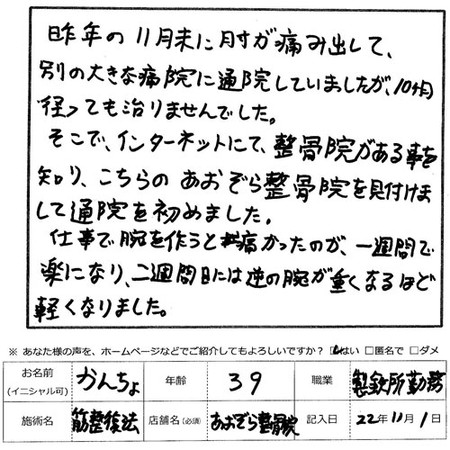 昨年の11月末に肘が痛み出して、
別の大きな病院に通院していましたが、10ヶ月
径っても治りませんでした。
そこで、インターネットにて、整骨院がある事を
知り、こちらの あおぞら整骨院を見付けま
して通院を初めました。
仕事で腕を作うと痛かったのが、一週間で
楽になり、二週間目には逆の腕が重くなるほど
軽くなりました。
※ あなた様の声を、ホームページなどでご紹介してもよろしいですか? □はい □匿名で □ダメ
お名前 (イニシャル可) かんちょ 年齢 39 職業 製鉄所勤務
施術名 筋整復法 店舗名(必須) あおぞら整骨院 記入日 22年11月1日